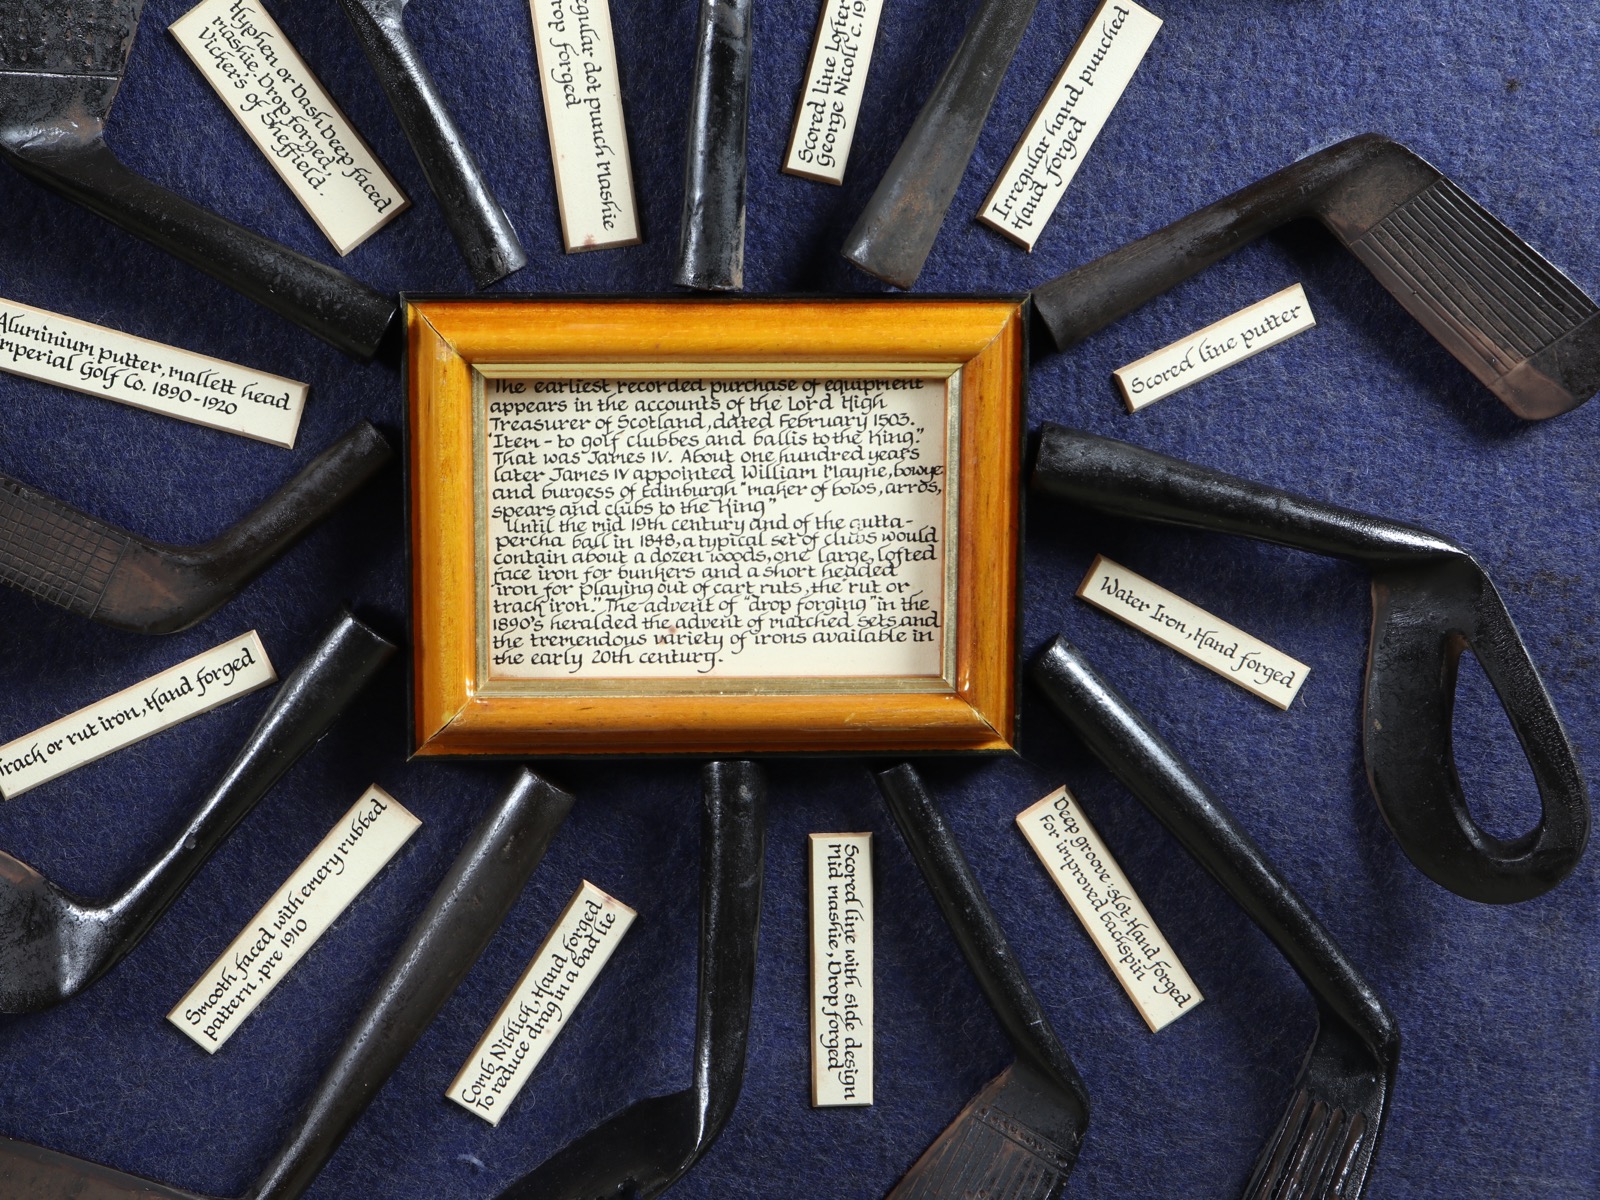 Hyphen or Dash Deep faced
Mashie. Drop forged,
Vicker's of Sheffield.
regular dot punch Mashie
forged
Scored line Lofter
George Nicoll c.
Irregular hand punched
Hand forged
Aluminium putter, mallett head
Imperial Golf Co. 1890-1920
Scored line putter
The earliest recorded purchase of equipment
appears in the accounts of the Lord High
Treasurer of Scotland, dated February 1503.
"Item - to golf clubbes and ballis to the King."
That was James IV. About one hundred years
later James IV appointed William Mayne, bowye
and burgess of Edinburgh "maker of bows, arros,
spears and clubs to the King"
Until the mid 19th century and of the gutta-
percha ball in 1848, a typical set of clubs would
contain about a dozen woods, one large, lofted
face iron for bunkers and a short headed
iron for playing out of cart ruts, the "rut or
track iron." The advent of "drop forging" in the
1890's heralded the advent of matched sets and
the tremendous variety of irons available in
the early 20th century.
Water Iron, Hand forged
Track or rut iron, Hand forged
Smooth faced with emery rubbed
pattern, pre 1910
Comb Niblick, Hand forged
To reduce drag in a bad lie
Scored line with side design
Mid mashie, Drop forged
Deep groove: slot, Hand forged
For improved backspin